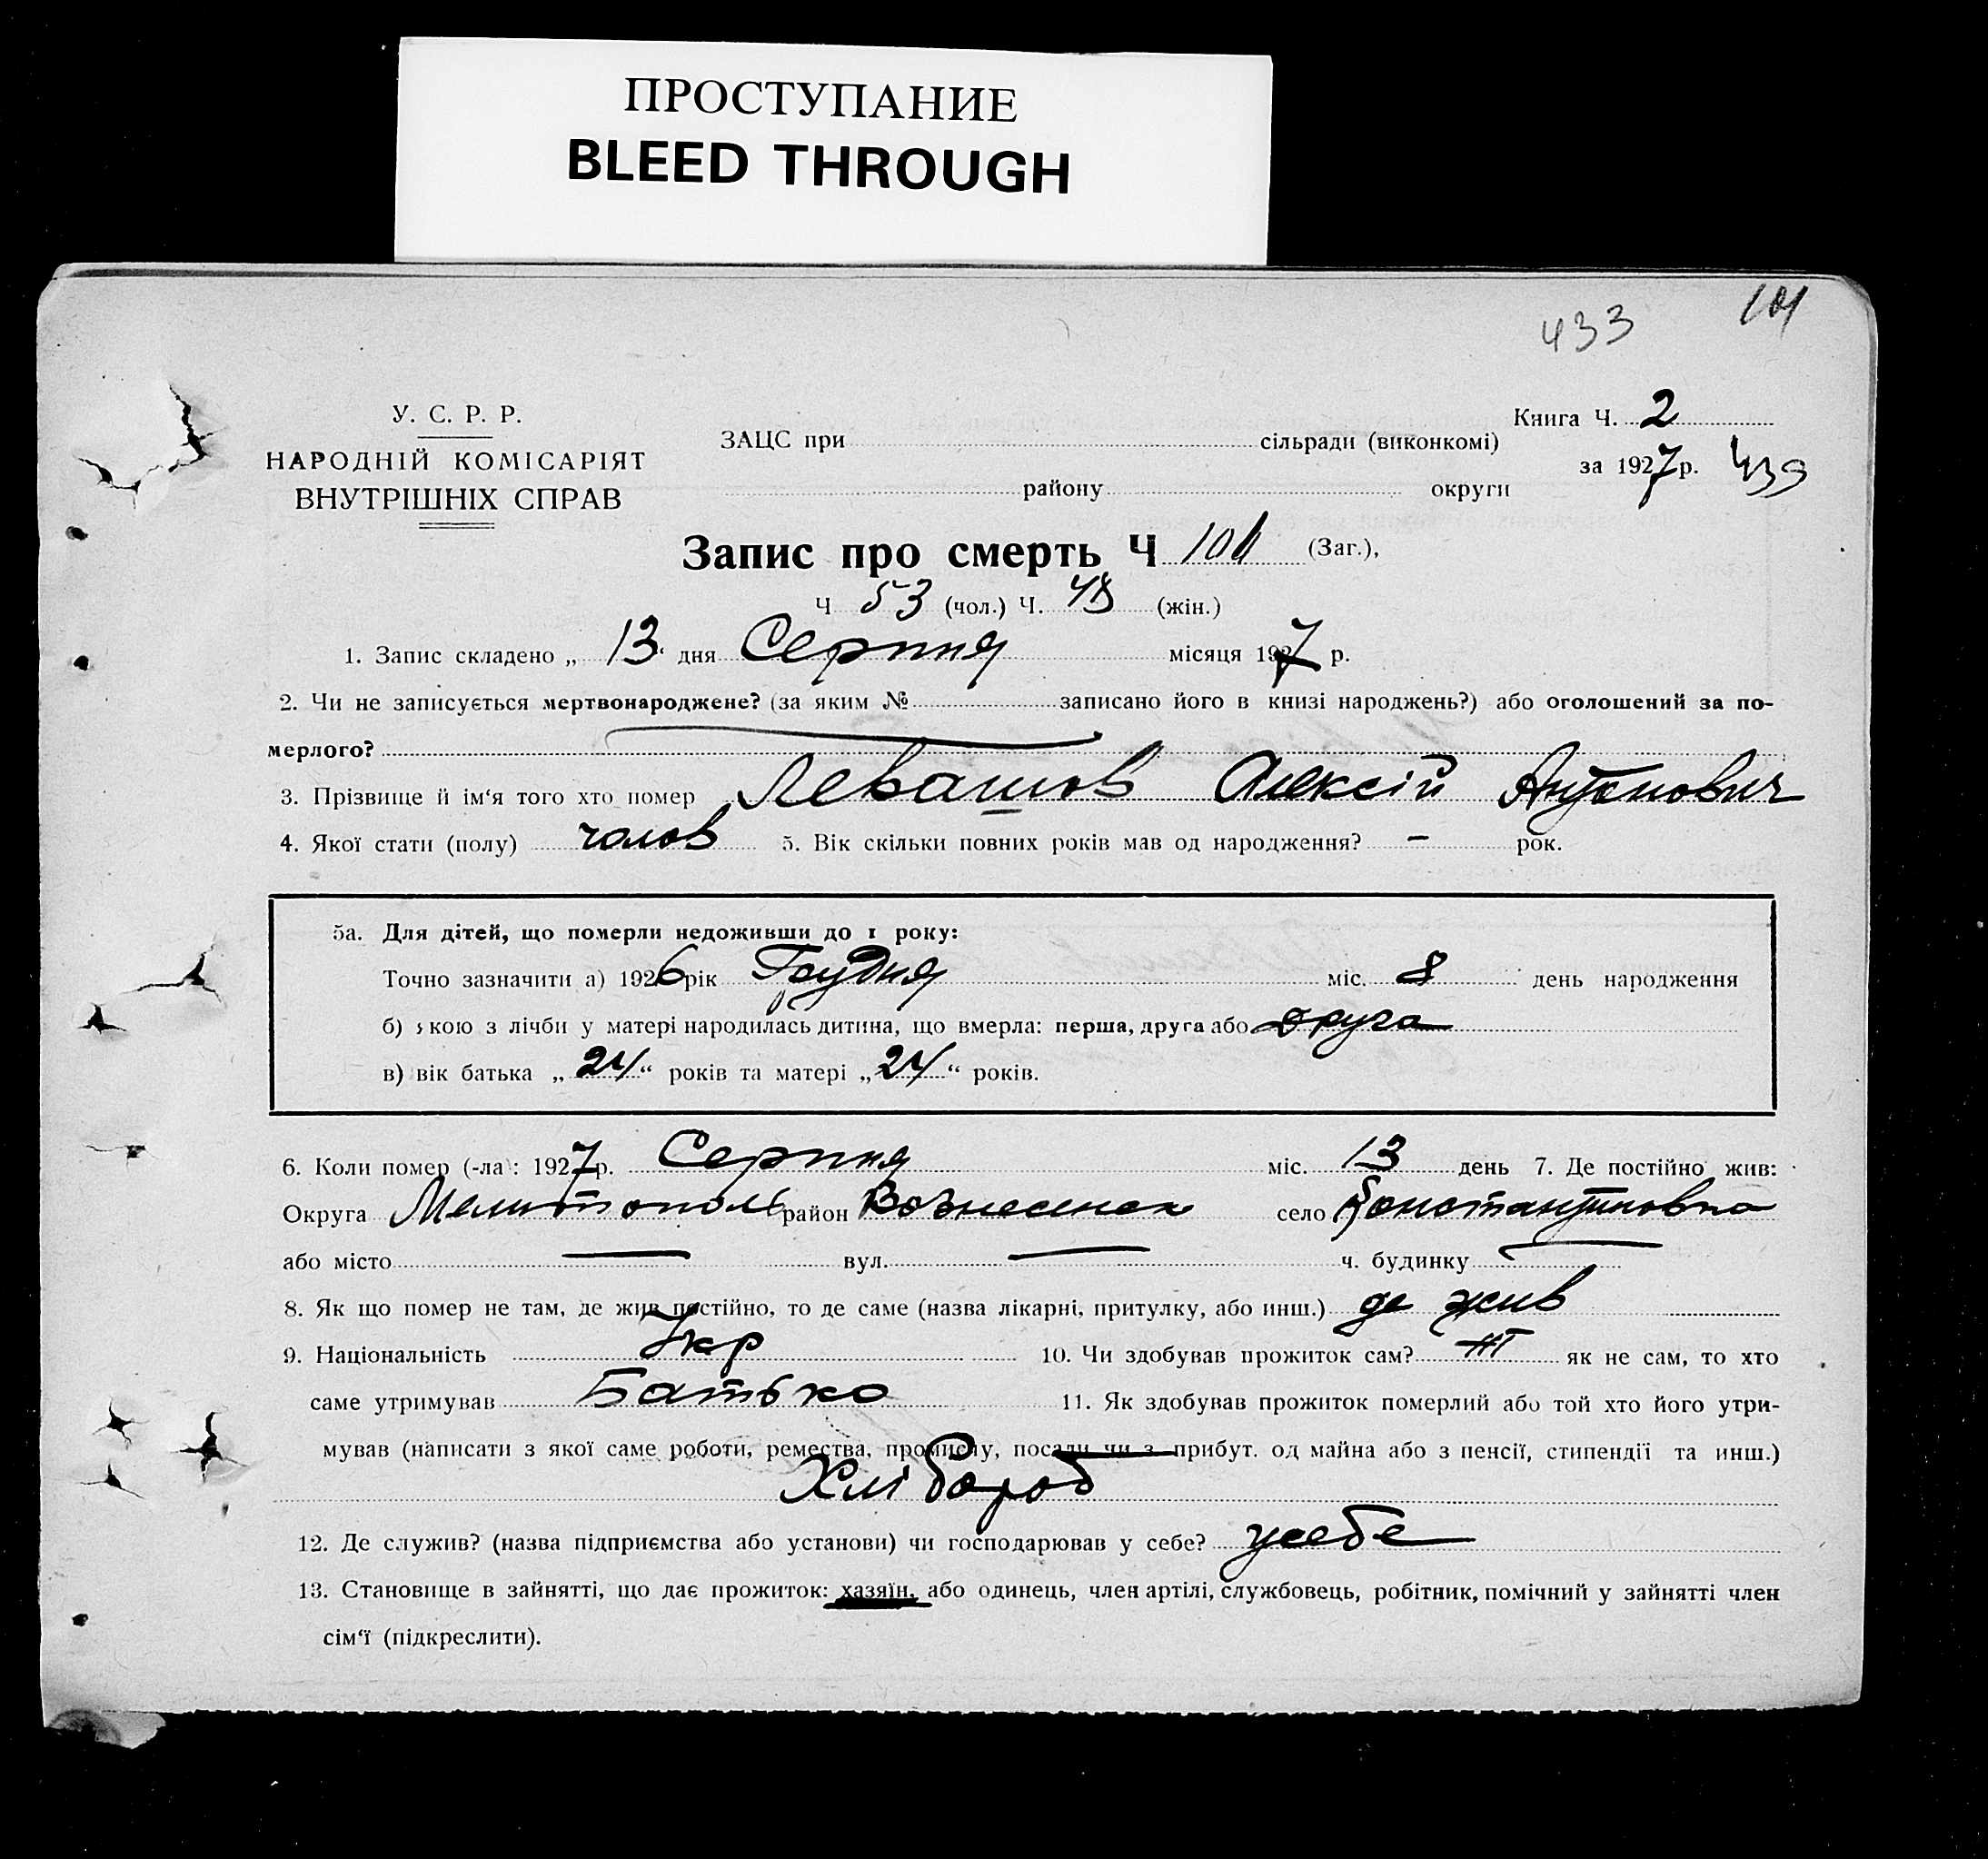 ПРОСТУПАНИЕ
BLEED THROUGH
433
101
У. С. Р. Р.
НАРОДНІЙ КОМІСАРІЯТ
ВНУТРІШНІХ СПРАВ
Книга Ч. 2
ЗАЦС при сільради (виконкомі)
за 1927 р. 439
району округи
Запис про смерть Ч 101 (Заг.),
Ч 53 (чол.) Ч. 48 (жін.)
1. Запис складено „ 13 “ дня Серпня місяця 1927 р.
2. Чи не записується мертвонароджене? (за яким № записано його в книзі народжень?) або оголошений за по-
мерлого?
3. Прізвище й ім‘я того хто помер Левашов Алексій Антонович
4. Якої стати (полу) чолов 5. Вік скільки повних років мав од народження? – рок.
5а. Для дітей, що померли недоживши до 1 року:
Точно зазначити а) 1926 рік Грудня міс. 8 день народження
б) якою з лічби у матері народилась дитина, що вмерла: перша, друга або друга
в) вік батька „ 24 “ років та матері „ 24 “ років.
6. Коли помер (-ла): 1927 р. Серпня міс. 13 день 7. Де постійно жив:
Округа Мелитополь район Вознесенск село Константиновка
або місто — вул. — ч. будинку —
8. Як що помер не там, де жив постійно, то де саме (назва лікарні, притулку, або инш.) де жив
9. Національність Укр 10. Чи здобував прожиток сам? ні як не сам, то хто
саме утримував Батько 11. Як здобував прожиток померлий або той хто його утри-
мував (написати з якої саме роботи, ремества, промислу, посади чи з прибут. од майна або з пенсії, стипендії та инш.)
Хлібороб
12. Де служив? (назва підприємства або установи) чи господарював у себе? у себе
13. Становище в зайнятті, що дає прожиток: хазяїн, або одинець, член артілі, службовець, робітник, помічний у зайнятті член
сім‘ї (підкреслити).